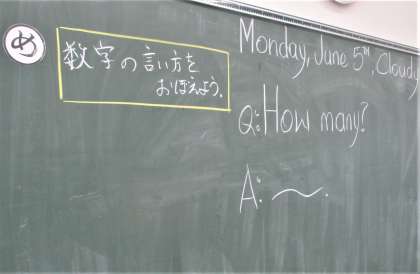 め
数字の言い方を
おぼえよう。
Monday, June 5th, Cloudy
Q: How many?
A: 〜.